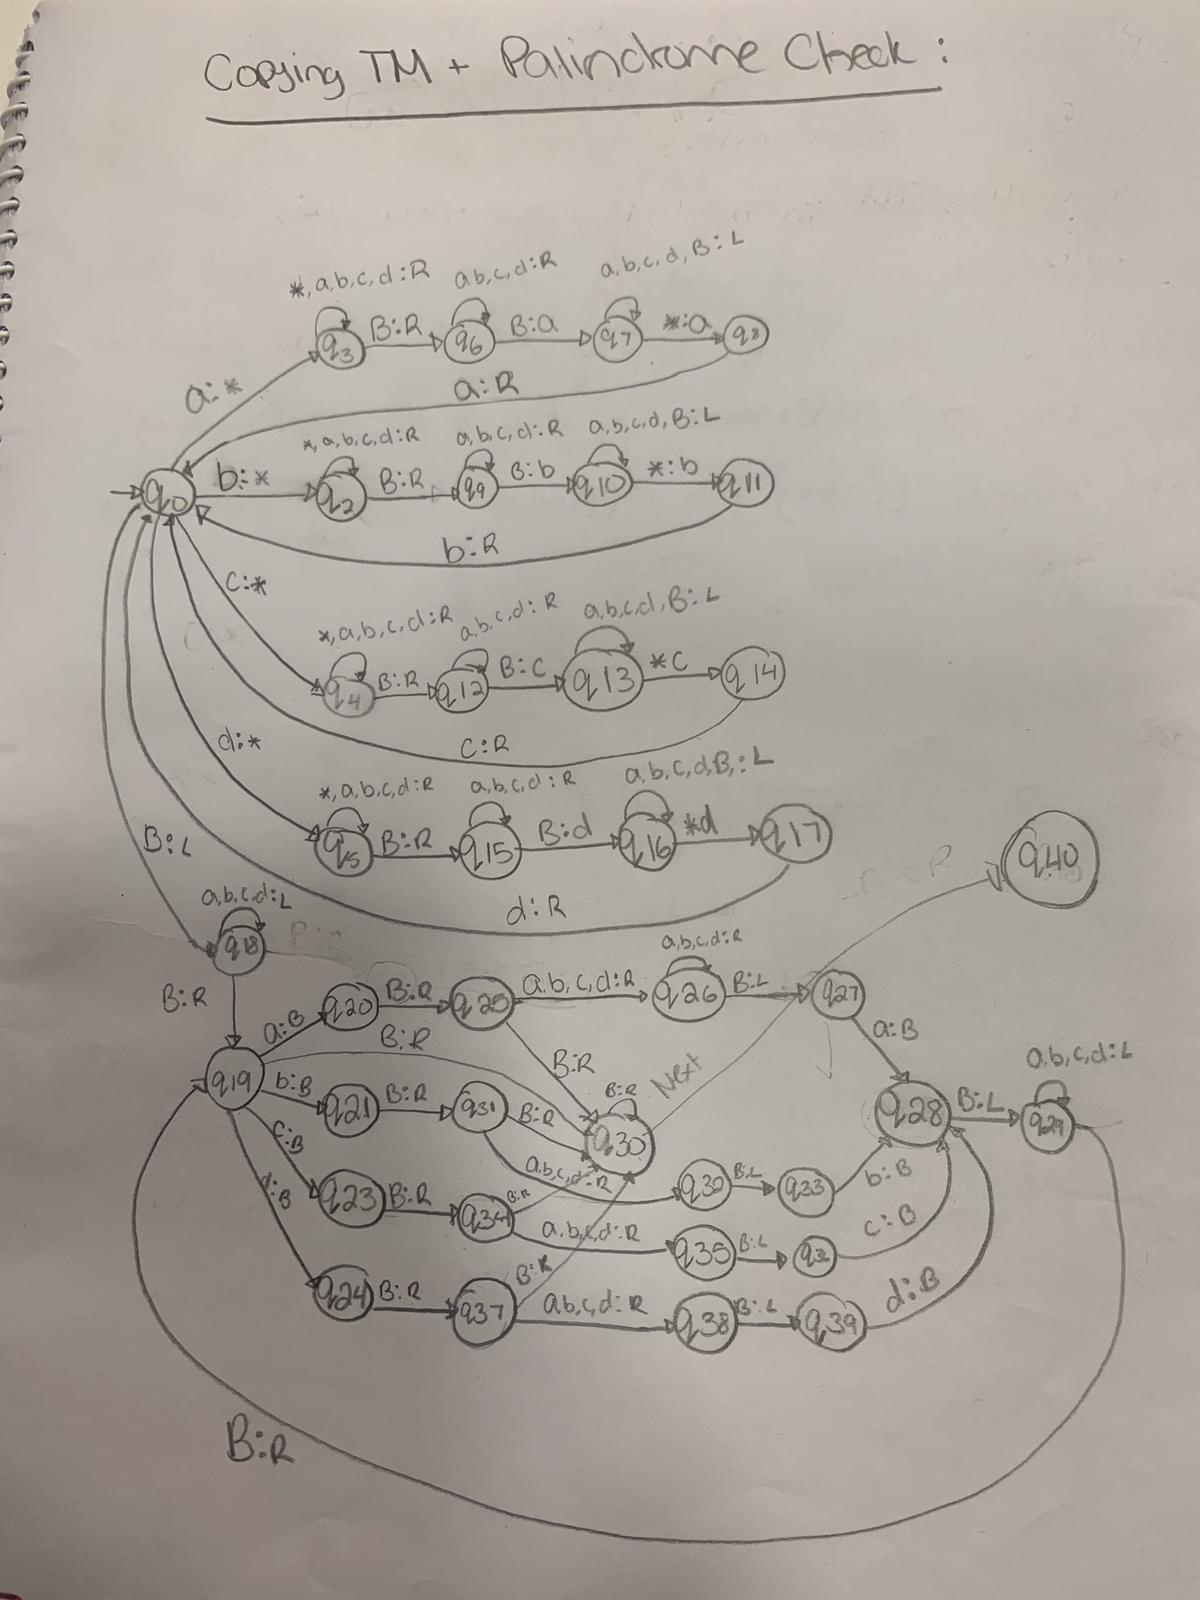 Copying TM + Palindrome Check:
*,a,b,c,d:R a,b,c,d:R a,b,c,d,B:L
q3 B:R q6 B:a q7 *:a q8
a:*
a:R
*,a,b,c,d:R a,b,c,d:R a,b,c,d,B:L
q0 b:* q2 B:R q9 B:b q10 *:b q11
b:R
c:*
*,a,b,c,d:R a,b,c,d:R a,b,c,d,B:L
q4 B:R q12 B:c q13 *c q14
d:*
c:R
*,a,b,c,d:R a,b,c,d:R a,b,c,d,B,:L
B:L q5 B:R q15 B:d q16 *d q17
q40
d:R
a,b,c,d:L
q18 a,b,c,d:R
B:R q20 B:R q25 a,b,c,d:R q26 B:L q27
a:B B:R a:B
q19 B:R B:R Next a,b,c,d:L
b:B q21 B:R q31 B:R q30 q28 B:L q29
c:B a,b,c,d:R
d:B q23 B:R q34 B:R q32 B:L q33 b:B
a,b,c,d:R q35 B:L c:B
q24 B:R q37 B:R a,b,c,d:R q38 B:L q39 d:B
B:R